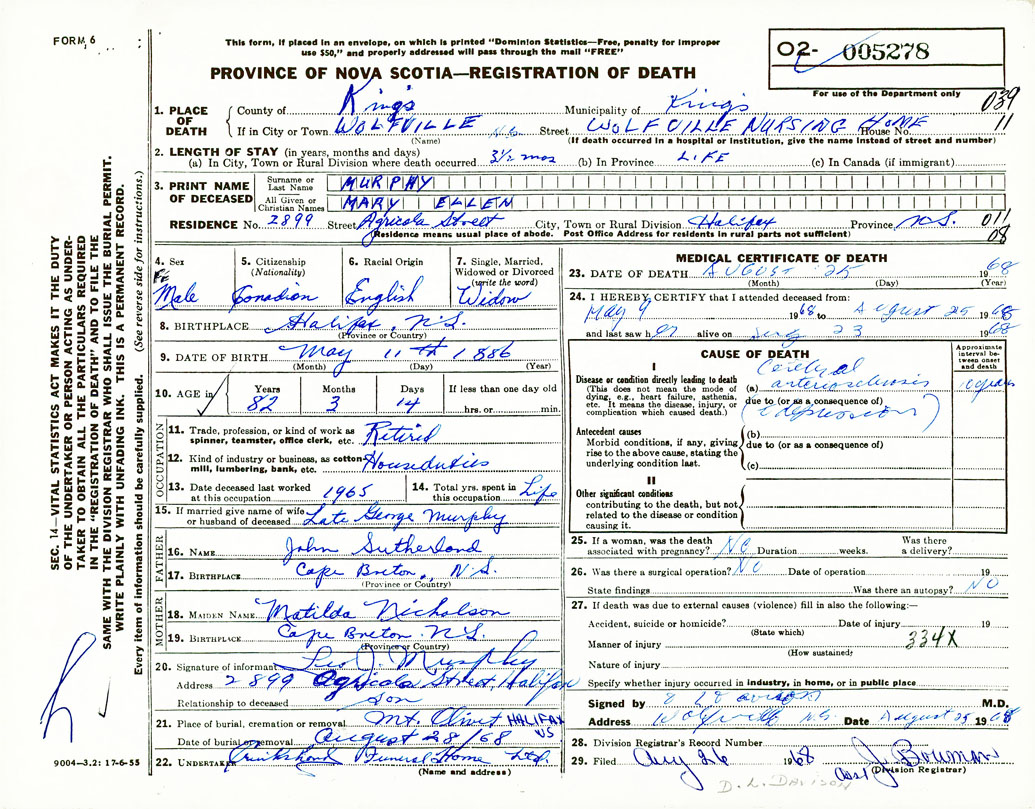 FORM 6
This form, if placed in an envelope, on which is printed "Dominion Statistics—Free, penalty for improper
use $50," and properly addressed will pass through the mail "FREE"
PROVINCE OF NOVA SCOTIA—REGISTRATION OF DEATH
O2- 005278
For use of the Department only
039
11
1. PLACE OF DEATH
County of King's Municipality of King's
If in City or Town WOLFVILLE N.S. Street WOLFVILLE NURSING HOME House No.
(Name) (If death occurred in a hospital or institution, give the name instead of street and number)
2. LENGTH OF STAY (in years, months and days)
(a) In City, Town or Rural Division where death occurred 3½ mos (b) In Province LIFE (c) In Canada (if immigrant)
3. PRINT NAME OF DECEASED
Surname or Last Name MURPHY
All Given or Christian Names MARY ELLEN
RESIDENCE No. 2899 Street Agricola Street City, Town or Rural Division Halifax Province N.S. 011
(Residence means usual place of abode. Post Office Address for residents in rural parts not sufficient) 08
4. Sex FeMale
5. Citizenship (Nationality) Canadian
6. Racial Origin English
7. Single, Married, Widowed or Divorced (write the word) Widow
8. BIRTHPLACE Halifax, N.S.
(Province or Country)
9. DATE OF BIRTH May 11th 1886
(Month) (Day) (Year)
10. AGE in Years 82 Months 3 Days 14 If less than one day old hrs. or min.
OCCUPATION
11. Trade, profession, or kind of work as spinner, teamster, office clerk, etc. Retired
12. Kind of industry or business, as cotton-mill, lumbering, bank, etc. Houseduties
13. Date deceased last worked at this occupation 1965
14. Total yrs. spent in this occupation Life
15. If married give name of wife or husband of deceased Late George Murphy
FATHER
16. NAME John Sutherland
17. BIRTHPLACE Cape Breton, N.S.
(Province or Country)
MOTHER
18. MAIDEN NAME Matilda Nicholson
19. BIRTHPLACE Cape Breton N.S.
(Province or Country)
20. Signature of informant Leo J. Murphy
Address 2899 Agricola Street, Halifax
Relationship to deceased Son
21. Place of burial, cremation or removal Mt. Olivet HALIFAX NS
Date of burial or removal August 28/68
22. UNDERTAKER Cruikshank Funeral Home Ltd.
(Name and address)
MEDICAL CERTIFICATE OF DEATH
23. DATE OF DEATH AUGUST 25 1968
(Month) (Day) (Year)
24. I HEREBY CERTIFY that I attended deceased from:
May 9 1968 to August 25 1968
and last saw her alive on Aug 23 1968
CAUSE OF DEATH
Approximate interval between onset and death
I
Disease or condition directly leading to death
(This does not mean the mode of dying, e.g., heart failure, asthenia, etc. It means the disease, injury, or complication which caused death.)
(a) Cerebral arteriosclerosis
due to (or as a consequence of)
(depression)
Antecedent causes
Morbid conditions, if any, giving rise to the above cause, stating the underlying condition last.
(b)
due to (or as a consequence of)
(c)
II
Other significant conditions
contributing to the death, but not related to the disease or condition causing it.
25. If a woman, was the death associated with pregnancy? NO Duration weeks. Was there a delivery?
26. Was there a surgical operation? NO Date of operation 19
State findings Was there an autopsy? NO
27. If death was due to external causes (violence) fill in also the following:—
Accident, suicide or homicide? Date of injury 19
(State which)
Manner of injury 334X
(How sustained)
Nature of injury
Specify whether injury occurred in industry, in home, or in public place
Signed by D L Davison M.D.
Address Wolfville N.S. Date August 25 1968
28. Division Registrar's Record Number
29. Filed Aug 26 1968 J. Bowman
Asst (Division Registrar)
D. L. DAVISON
SEC. 14—VITAL STATISTICS ACT MAKES IT THE DUTY
OF THE UNDERTAKER OR PERSON ACTING AS UNDER-
TAKER TO OBTAIN ALL THE PARTICULARS REQUIRED
IN THE "REGISTRATION OF DEATH" AND TO FILE THE
SAME WITH THE DIVISION REGISTRAR WHO SHALL ISSUE THE BURIAL PERMIT.
WRITE PLAINLY WITH UNFADING INK. THIS IS A PERMANENT RECORD.
Every item of information should be carefully supplied. (See reverse side for instructions.)
9004-3.2: 17-6-55